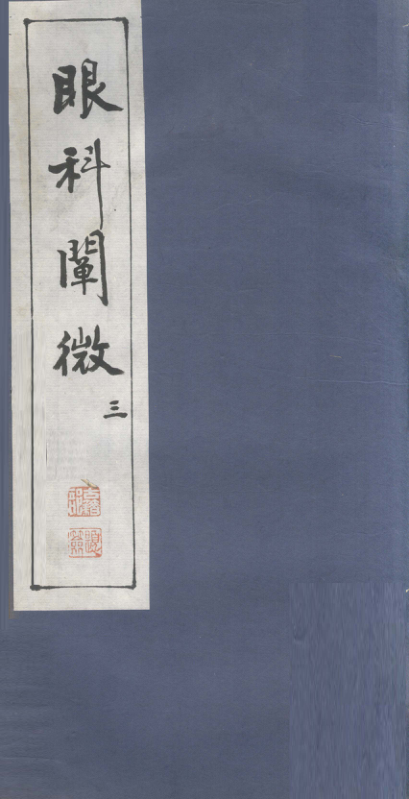 眼科闡微
三